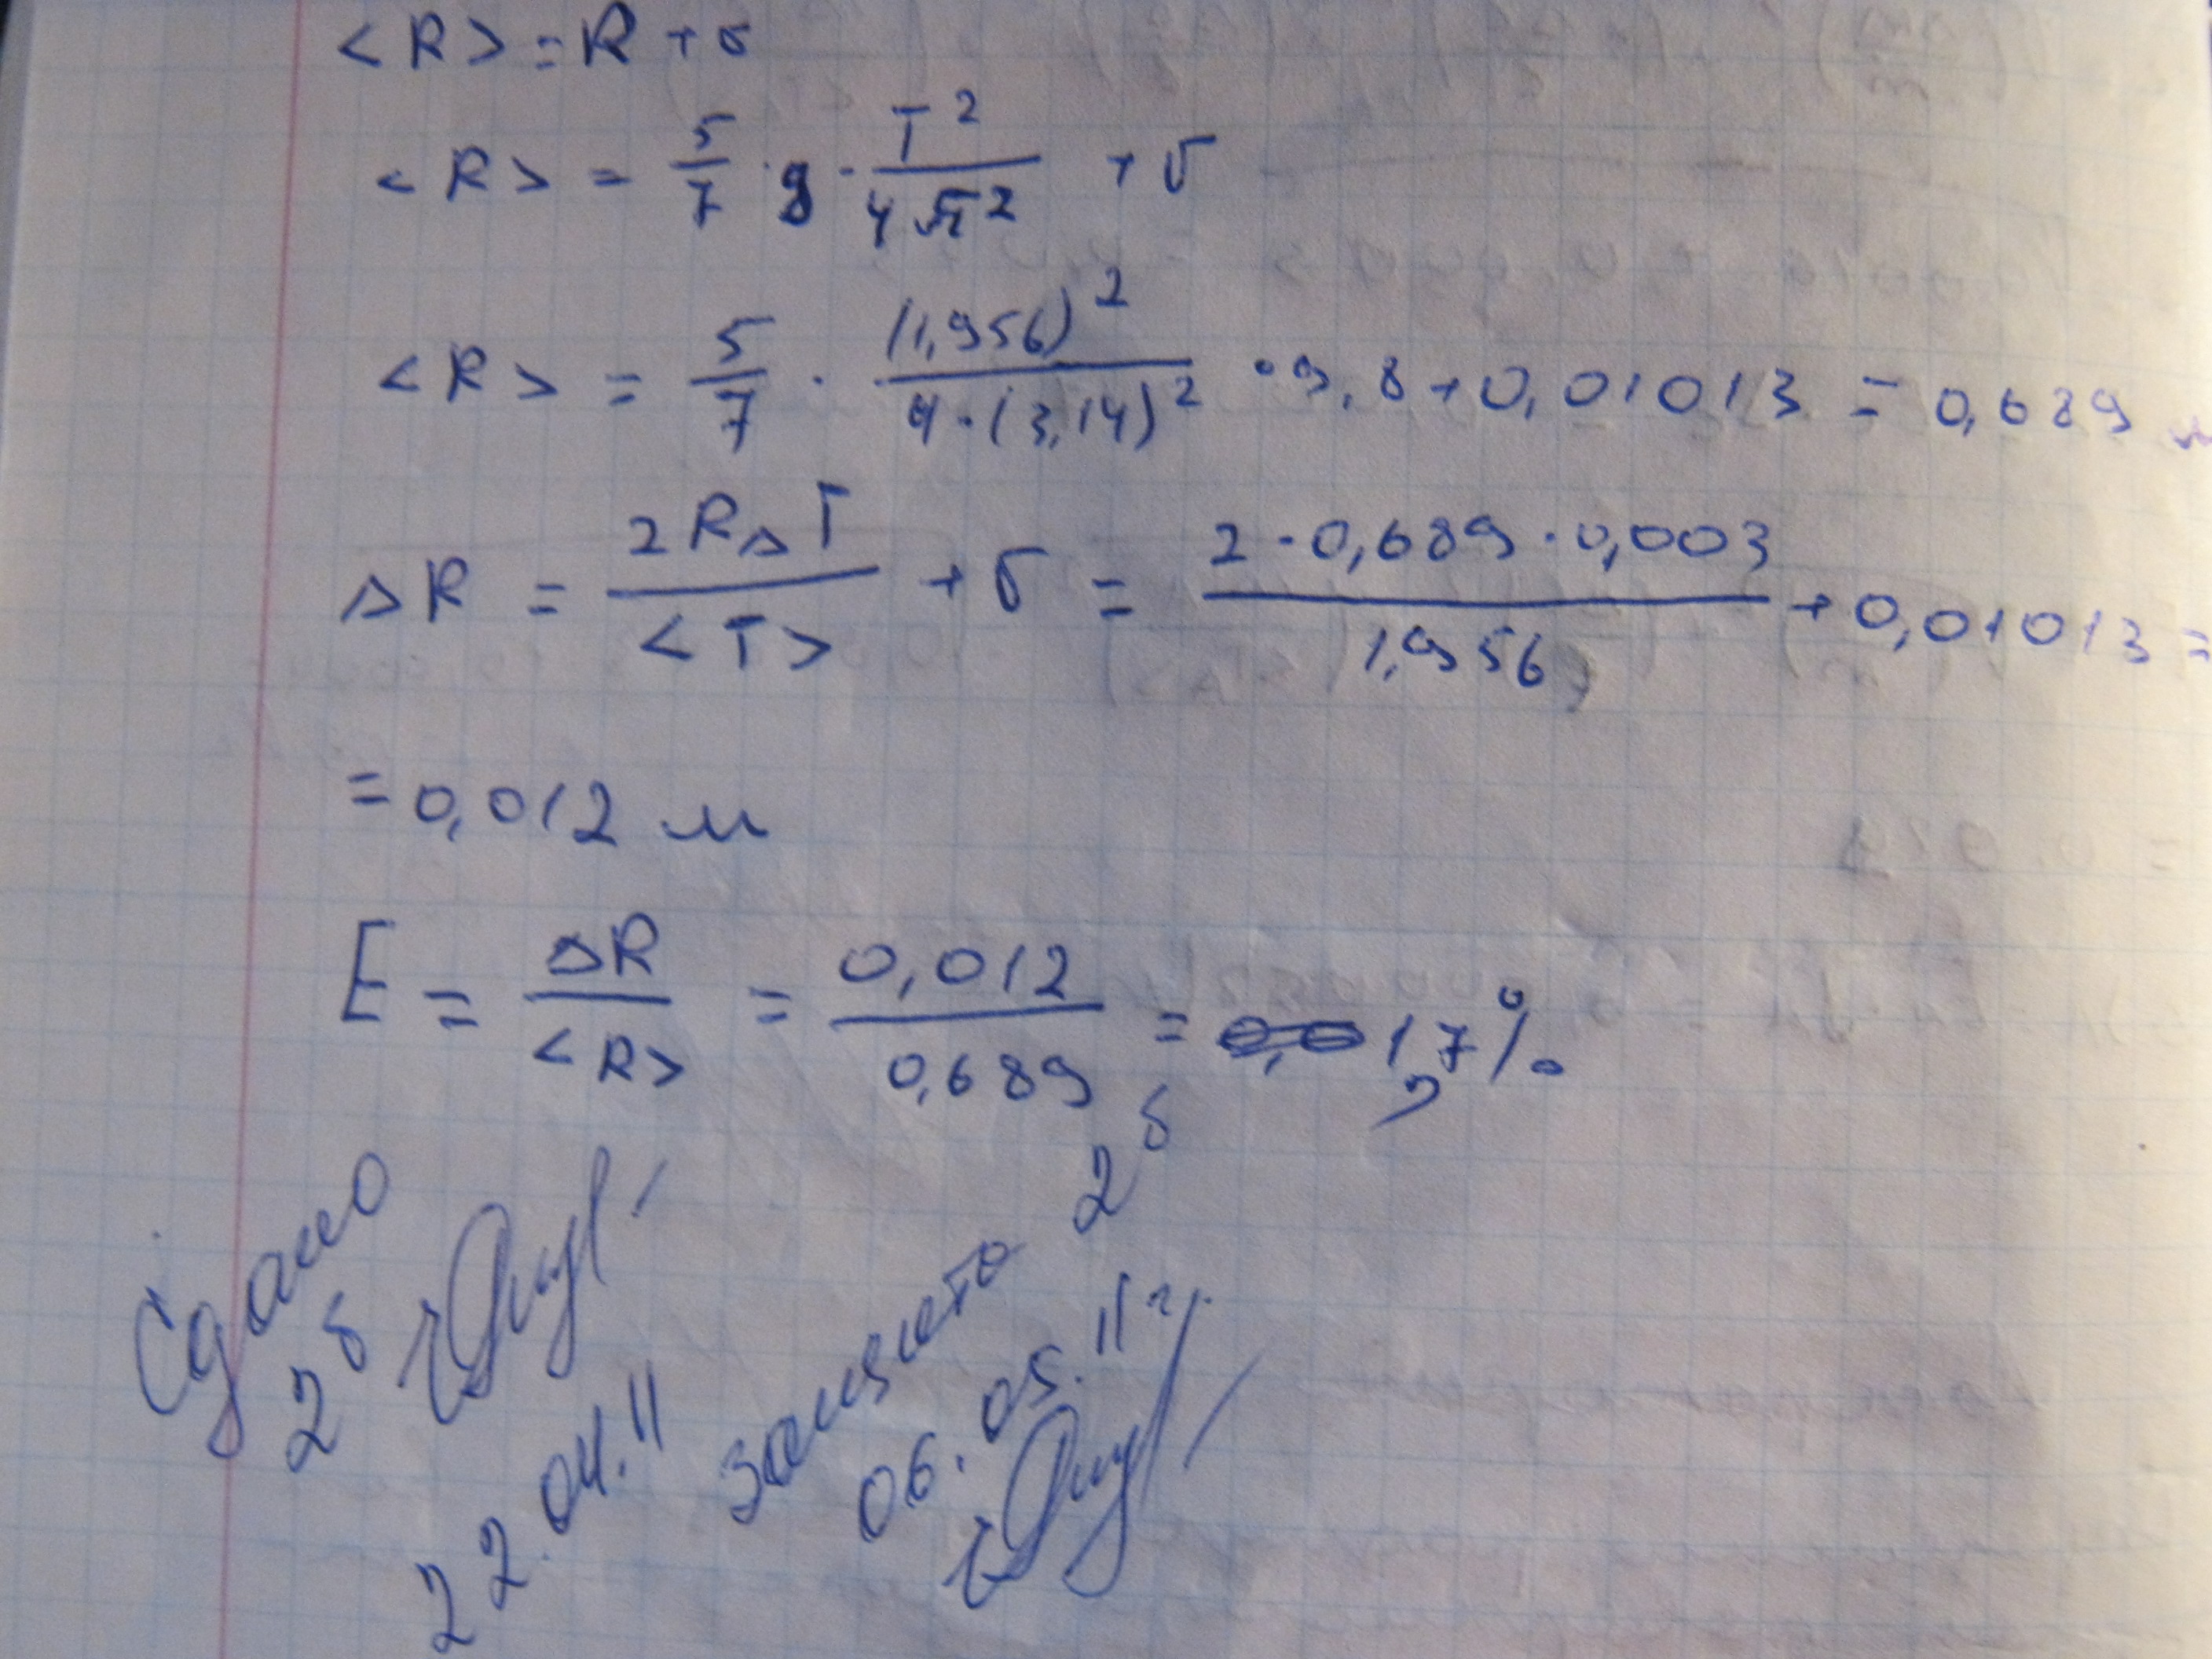 <R> = R + σ
<R> = 5/7 · g · T²/4π² + σ
<R> = 5/7 · (1,956)²/4·(3,14)² · 9,8 + 0,01013 = 0,689 м
ΔR = 2RΔT/<T> + σ = 2·0,689·0,003/1,956 + 0,01013 =
= 0,012 м
E = ΔR/<R> = 0,012/0,689 = 1,7%
Сдано
2б
22.04.11
защита 2б
06.05.11г.